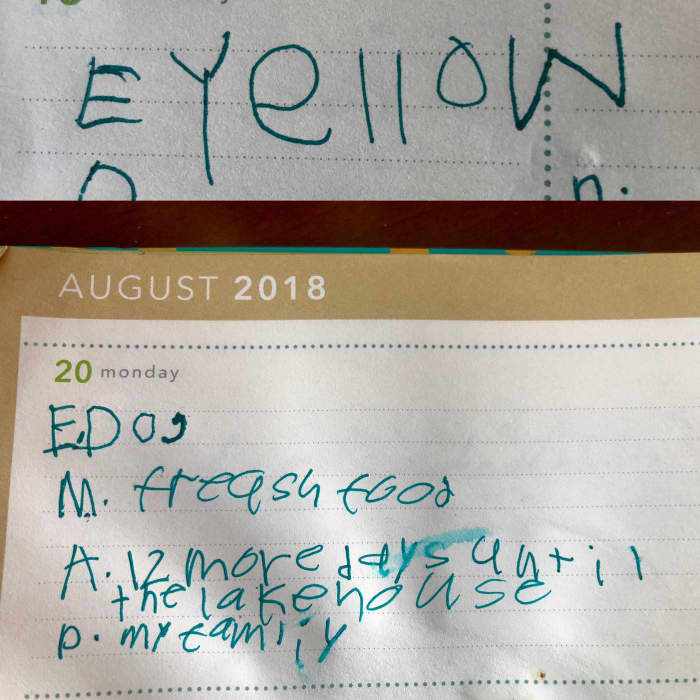 E yellow
AUGUST 2018
20 monday
E. Dog
M. freash food
A. 12 more days until
the lakehouse
D. my family